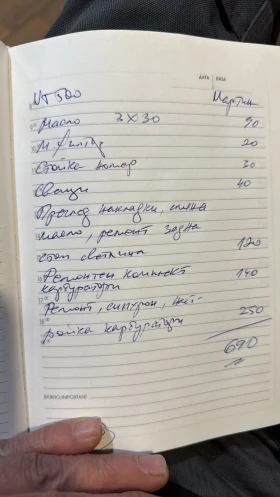 ДАТА | DATA
МТ 500 Мартин
Масло 3x30 90
М. Филтър 20
Стойка номер 30
Свещи 40
Преглед накладки, смяна
масло, ремонт задна
стоп светлина 120
Ремонтен комплект 140
карбуратори
Ремонт, синхрон, наст-
ройка карбуратори 250
690
ВАЖНО/IMPORTANT